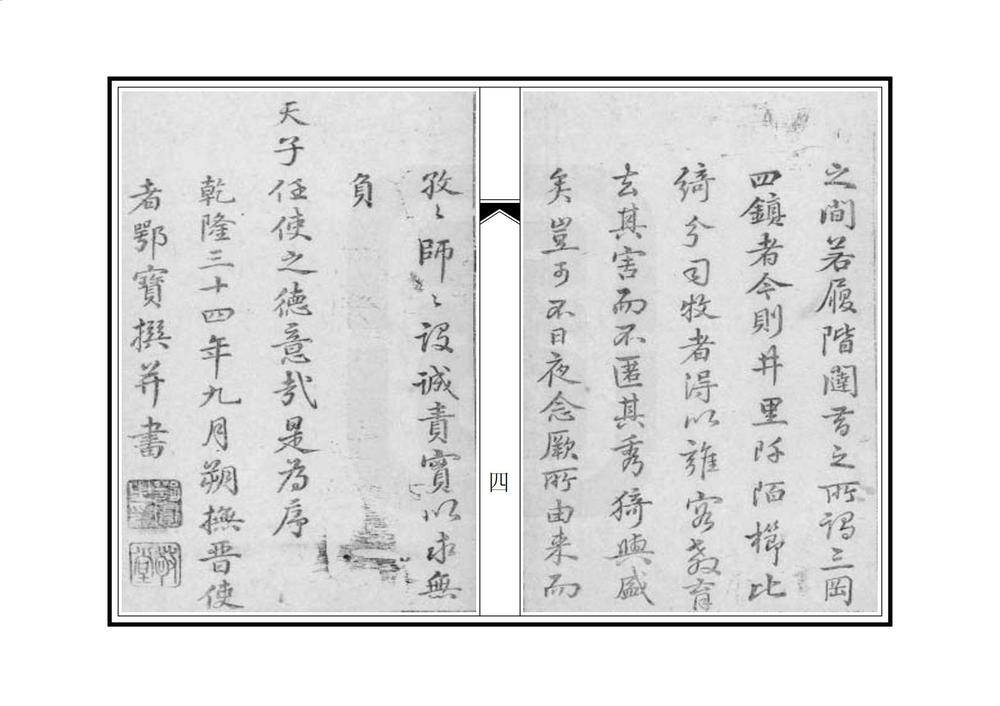 之間若履階闥昔之所謂三岡
四鎮者今則井里阡陌櫛比
綺分司牧者得以雍容教育
去其害而不匿其秀猗與盛
矣豈可不日夜念厥所由来而
孜〻師〻設誠責實以求無
負
天子任使之德意哉是為序
乾隆三十四年九月朔撫晉使
者鄂寶撰并書
四